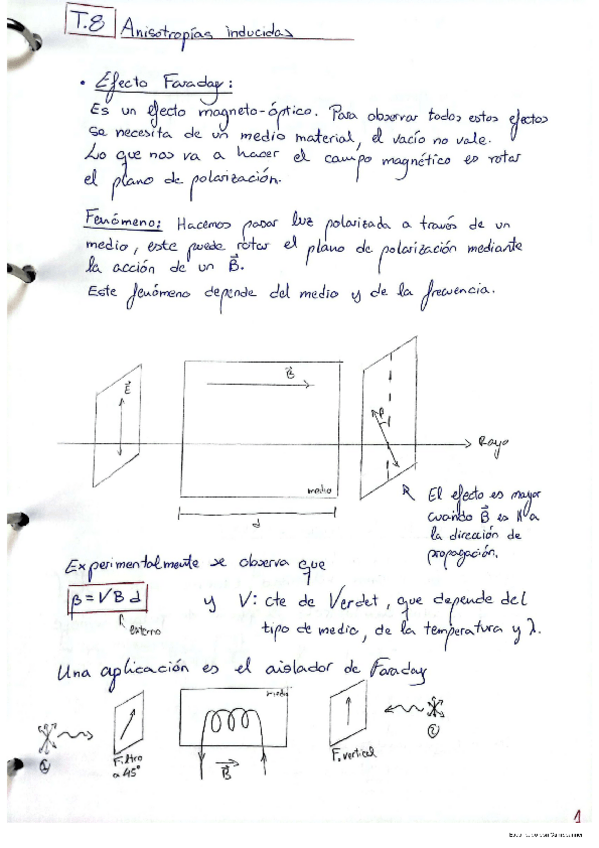 T.8 Anisotropías inducidas
• Efecto Faraday:
Es un efecto magneto-óptico. Para observar todos estos efectos
se necesita de un medio material, el vacío no vale.
Lo que nos va a hacer el campo magnético es rotar
el plano de polarización.
Fenómeno: Hacemos pasar luz polarizada a través de un
medio, este puede rotar el plano de polarización mediante
la acción de un B⃗.
Este fenómeno depende del medio y de la frecuencia.
E⃗
B⃗
β
Rayo
medio
d
El efecto es mayor
cuando B⃗ es ∥ a
la dirección de
propagación.
Experimentalmente se observa que
β = V B d y V: cte de Verdet, que depende del
externo tipo de medio, de la temperatura y λ.
Una aplicación es el aislador de Faraday
medio
①
Filtro
a 45°
B⃗
F. vertical
②
1